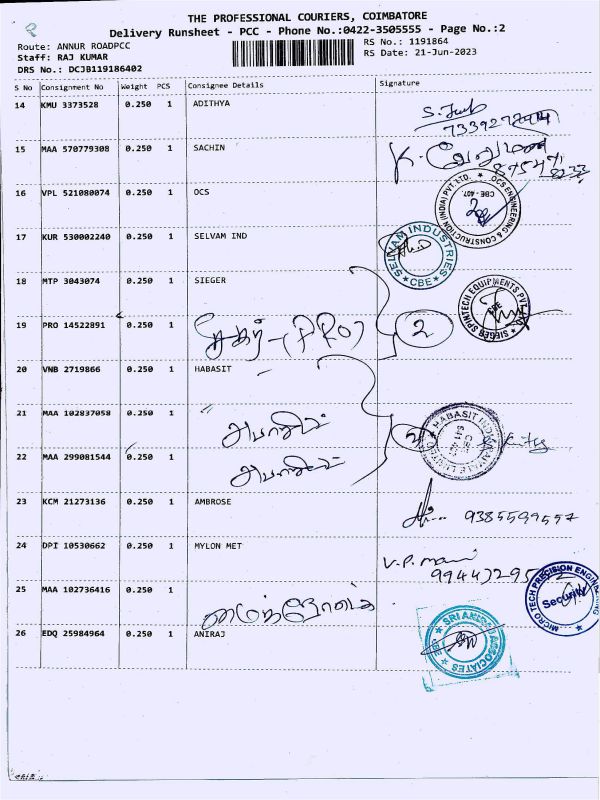 THE PROFESSIONAL COURIERS, COIMBATORE
Delivery Runsheet - PCC - Phone No.:0422-3505555 - Page No.:2
Route: ANNUR ROADPCC
RS No.: 1191864
Staff: RAJ KUMAR
RS Date: 21-Jun-2023
DRS No.: DCJB119186402
S No Consignment No Weight PCS Consignee Details Signature
14 KMU 3373528 0.250 1 ADITHYA
15 MAA 570779308 0.250 1 SACHIN
16 VPL 521080074 0.250 1 OCS
OCS ENGINEERING & CONSTRUCTION (INDIA) PVT. LTD. CBE - 407.
17 KUR 530002240 0.250 1 SELVAM IND
SELVAM INDUSTRIES CBE
18 MTP 3043074 0.250 1 SIEGER
SIEGER SPINTECH EQUIPMENTS PVT
19 PRO 14522891 0.250 1
சேகர் - (PRO) 2
20 VNB 2719866 0.250 1 HABASIT
21 MAA 102837058 0.250 1
22 MAA 299081544 0.250 1
23 KCM 21273136 0.250 1 AMBROSE
9385599557
24 DPI 10530662 0.250 1 MYLON MET
V.P. mani
25 MAA 102736416 0.250 1
MICRO TECH PRECISION ENGINEERING Security
26 EDQ 25984964 0.250 1 ANIRAJ
SRI ANIRAJ ASSOCIATES CBE